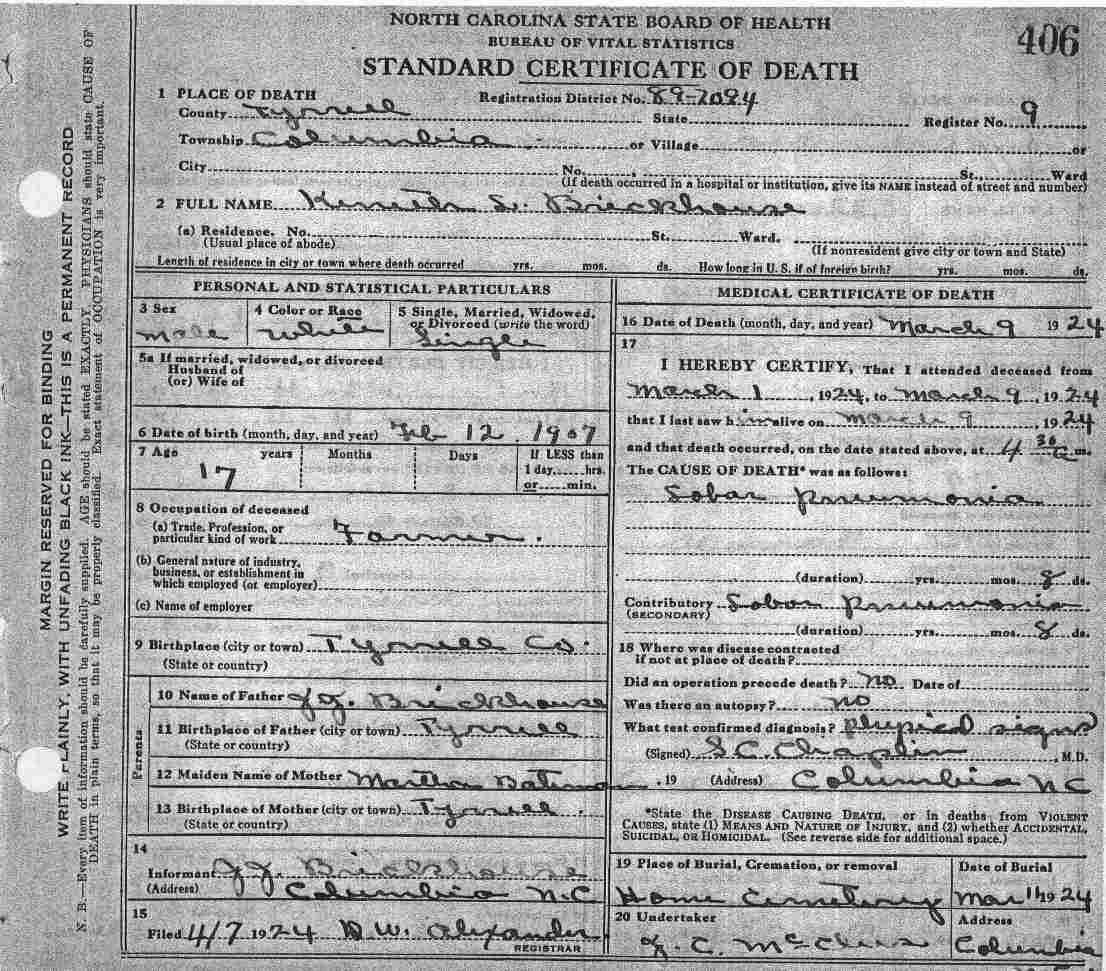 NORTH CAROLINA STATE BOARD OF HEALTH
BUREAU OF VITAL STATISTICS
406
STANDARD CERTIFICATE OF DEATH
1 PLACE OF DEATH Registration District No. 89-7094
County Tyrrell State Register No. 9
Township Columbia or Village or
City No. St., Ward
(If death occurred in a hospital or institution, give its NAME instead of street and number)
2 FULL NAME Kenneth L. Brickhouse
(a) Residence. No. St. Ward.
(Usual place of abode) (If nonresident give city or town and State)
Length of residence in city or town where death occurred yrs. mos. ds. How long in U. S. if of foreign birth? yrs. mos. ds.
PERSONAL AND STATISTICAL PARTICULARS
3 Sex
male
4 Color or Race
White
5 Single, Married, Widowed,
or Divorced (write the word)
Single
5a If married, widowed, or divorced
Husband of
(or) Wife of
6 Date of birth (month, day, and year) Feb 12 1907
7 Age years Months Days If LESS than
17 1 day,......hrs.
or......min.
8 Occupation of deceased
(a) Trade, Profession, or
particular kind of work Farmer.
(b) General nature of industry,
business, or establishment in
which employed (or employer)
(c) Name of employer
9 Birthplace (city or town) Tyrrell Co.
(State or country)
Parents
10 Name of Father J.J. Brickhouse
11 Birthplace of Father (city or town) Tyrrell
(State or country)
12 Maiden Name of Mother Martha Bateman
13 Birthplace of Mother (city or town) Tyrrell
(State or country)
14
Informant J.J. Brickhouse
(Address) Columbia N.C
15
Filed 4/7 1924 D.W. Alexander
REGISTRAR
MEDICAL CERTIFICATE OF DEATH
16 Date of Death (month, day, and year) March 9 1924
17
I HEREBY CERTIFY, That I attended deceased from
March 1, 1924, to March 9, 1924
that I last saw him alive on March 9, 1924
and that death occurred, on the date stated above, at 4 30 a m.
The CAUSE OF DEATH* was as follows:
Lobar pneumonia
(duration) yrs. mos. 8 ds.
Contributory Lobar Pneumonia
(SECONDARY)
(duration) yrs. mos. 8 ds.
18 Where was disease contracted
if not at place of death?
Did an operation precede death? no Date of
Was there an autopsy? no
What test confirmed diagnosis? physical signs
(Signed) S.C. Chaplin, M.D.
, 19 (Address) Columbia NC
*State the DISEASE CAUSING DEATH, or in deaths from VIOLENT
CAUSES, state (1) MEANS AND NATURE OF INJURY, and (2) whether ACCIDENTAL,
SUICIDAL, OR HOMICIDAL. (See reverse side for additional space.)
19 Place of Burial, Cremation, or removal Date of Burial
Home Cemetery Mar 11 1924
20 Undertaker Address
C. McClees Columbia
MARGIN RESERVED FOR BINDING
WRITE PLAINLY, WITH UNFADING BLACK INK—THIS IS A PERMANENT RECORD
N. B.—Every item of information should be carefully supplied. AGE should be stated EXACTLY. PHYSICIANS should state CAUSE OF
DEATH in plain terms, so that it may be properly classified. Exact statement of OCCUPATION is very important.